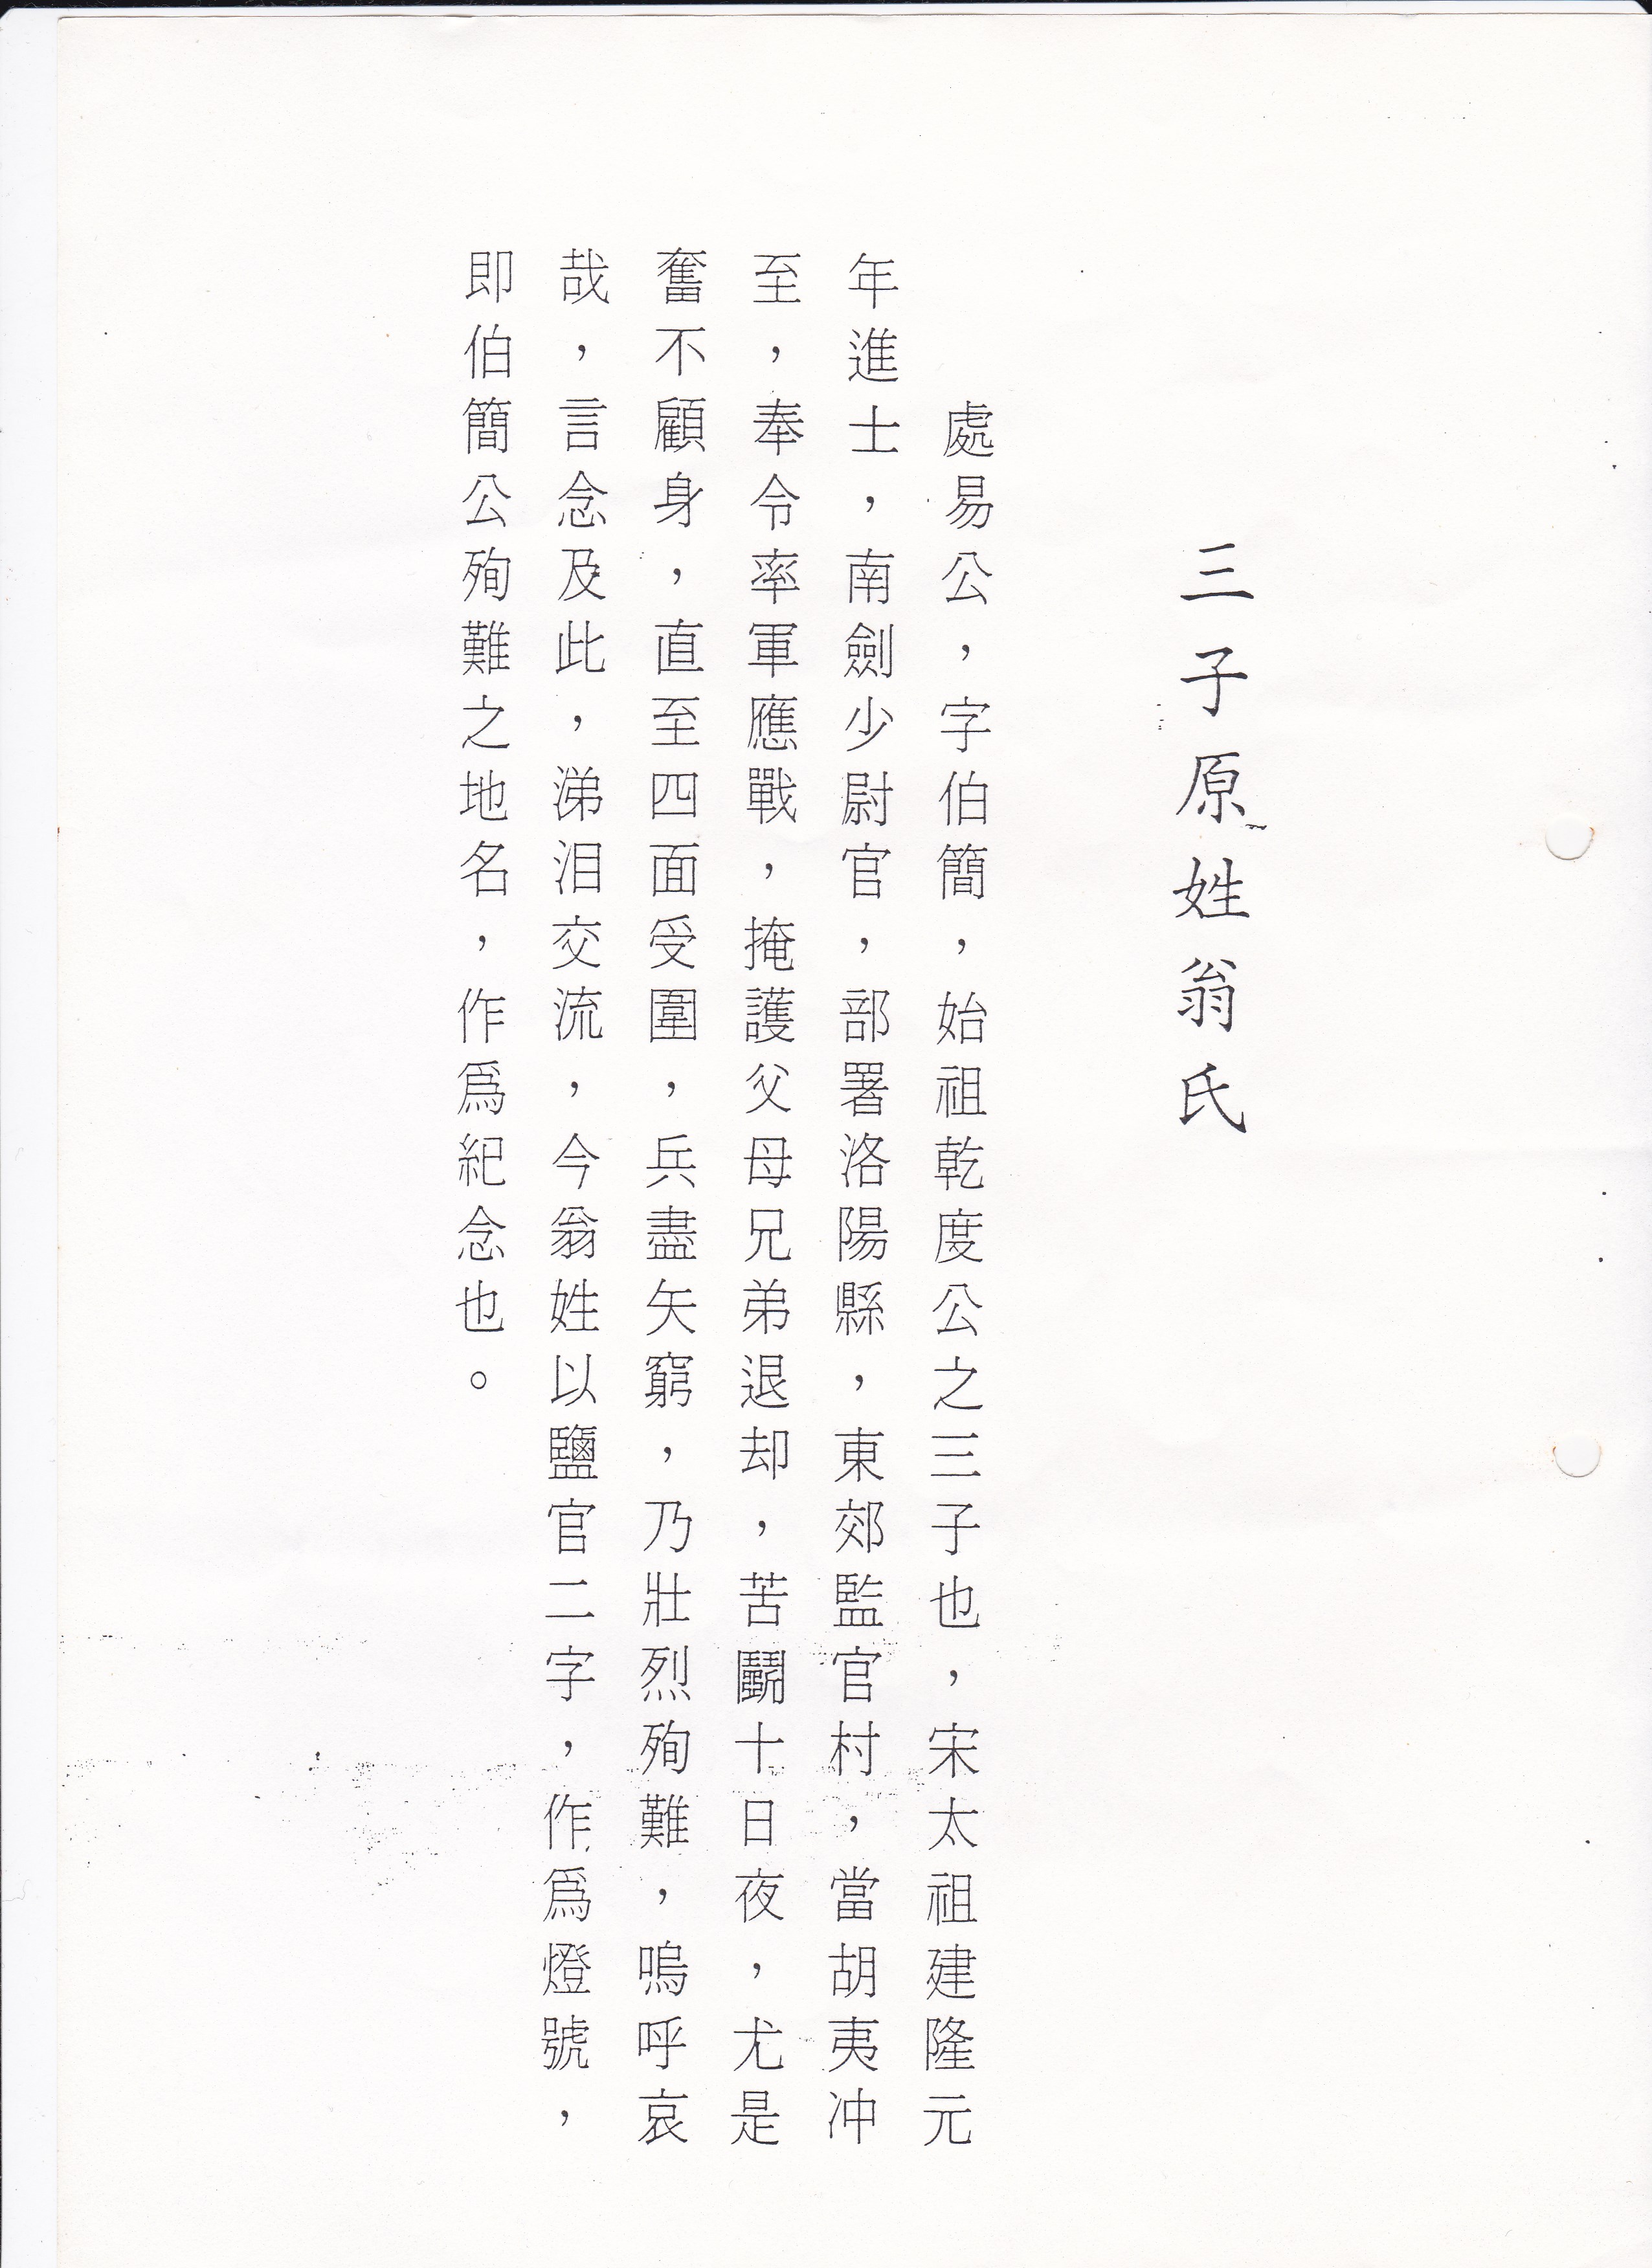 三子原姓翁氏
處易公，字伯簡，始祖乾度公之三子也，宋太祖建隆元
年進士，南劍少尉官，部署洛陽縣，東郊監官村，當胡夷冲
至，奉令率軍應戰，掩護父母兄弟退却，苦鬭十日夜，尤是
奮不顧身，直至四面受圍，兵盡矢窮，乃壯烈殉難，嗚呼哀
哉，言念及此，涕泪交流，今翁姓以鹽官二字，作爲燈號，
即伯簡公殉難之地名，作爲紀念也。